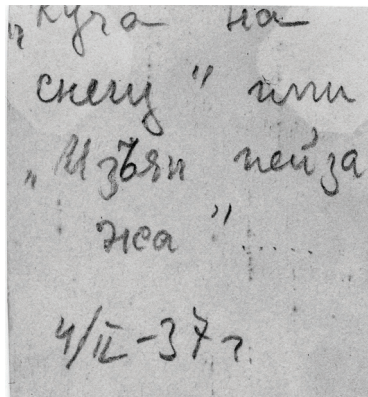 „Куча на
снегу" или
„Изъян пейза
жа".....
4/II-37 г.